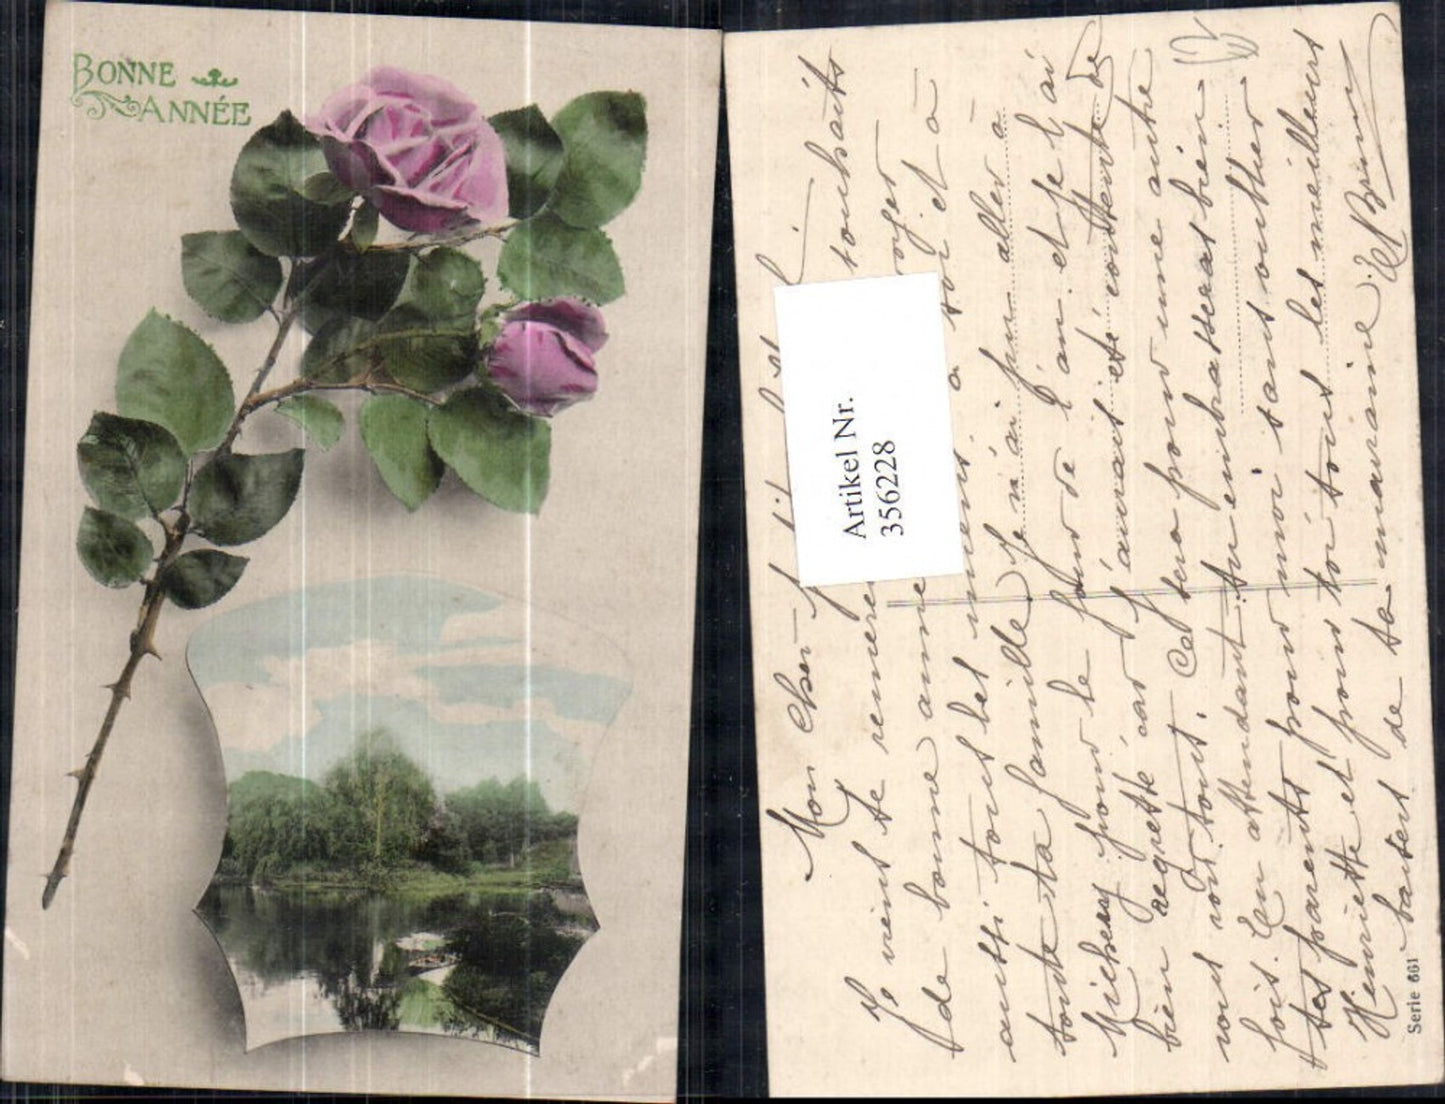 BONNE
ANNÉE
Artikel Nr.
356228
Mon cher
Je viens te remerc souhaits
de bonne année
aussi tous les à toi et à
toute ta famille Je n'ai pu aller à
pour le jour de l'an et je l'ai
bien regretté car j'aurais été contente de
vous voir tous. Ce sera pour une autre
fois. En attendant tu embrasseras bien
tes parents pour moi sans oublier
Henriette et pour toi tous les meilleurs
baisers de ta marraine.
Serie 661